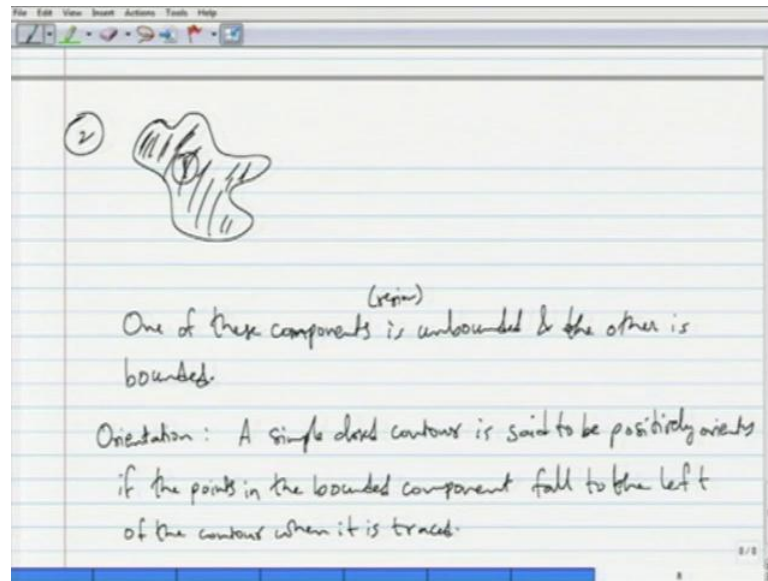 File Edit View Insert Actions Tools Help
2
1
(region)
One of these components is unbounded & the other is
bounded.
Orientation : A simple closed contour is said to be positively orients
if the points in the bounded component fall to the left
of the contour when it is traced.
8/8
8